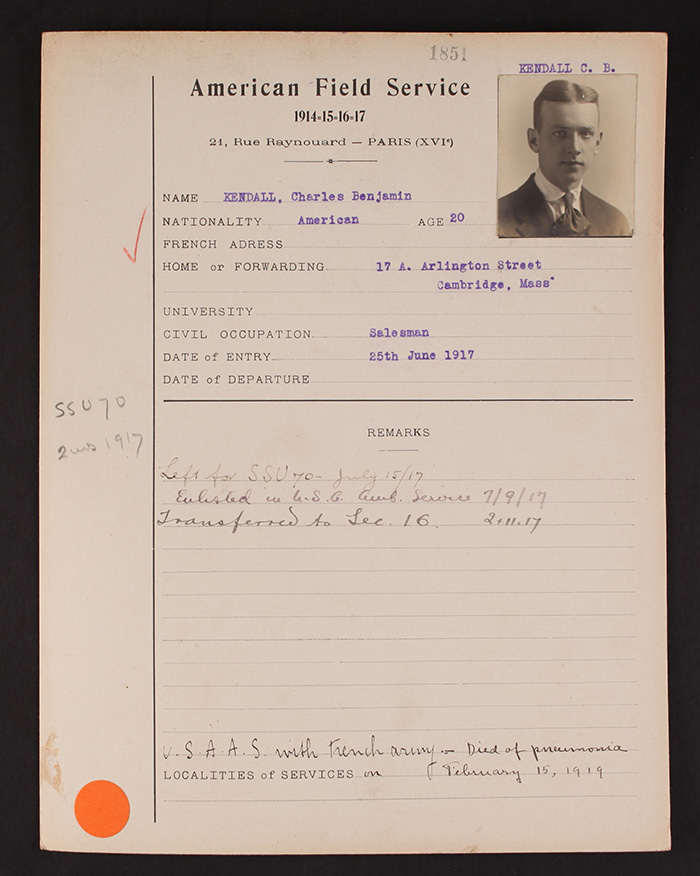 1851
KENDALL C. B.
American Field Service
1914-15-16-17
21, Rue Raynouard — PARIS (XVIe)
NAME KENDALL, Charles Benjamin
NATIONALITY American AGE 20
FRENCH ADRESS
HOME or FORWARDING 17 A. Arlington Street
Cambridge, Mass"
UNIVERSITY
CIVIL OCCUPATION Salesman
DATE of ENTRY 25th June 1917
DATE of DEPARTURE
SSU 70
1917
REMARKS
Left for SSU 70- July 15/17
Enlisted in U.S.A. Amb. Service 7/9/17
Transferred to Sec. 16. 2-11-17
U.S.A.A.S. with French army – Died of pneumonia
LOCALITIES of SERVICES on February 15, 1919